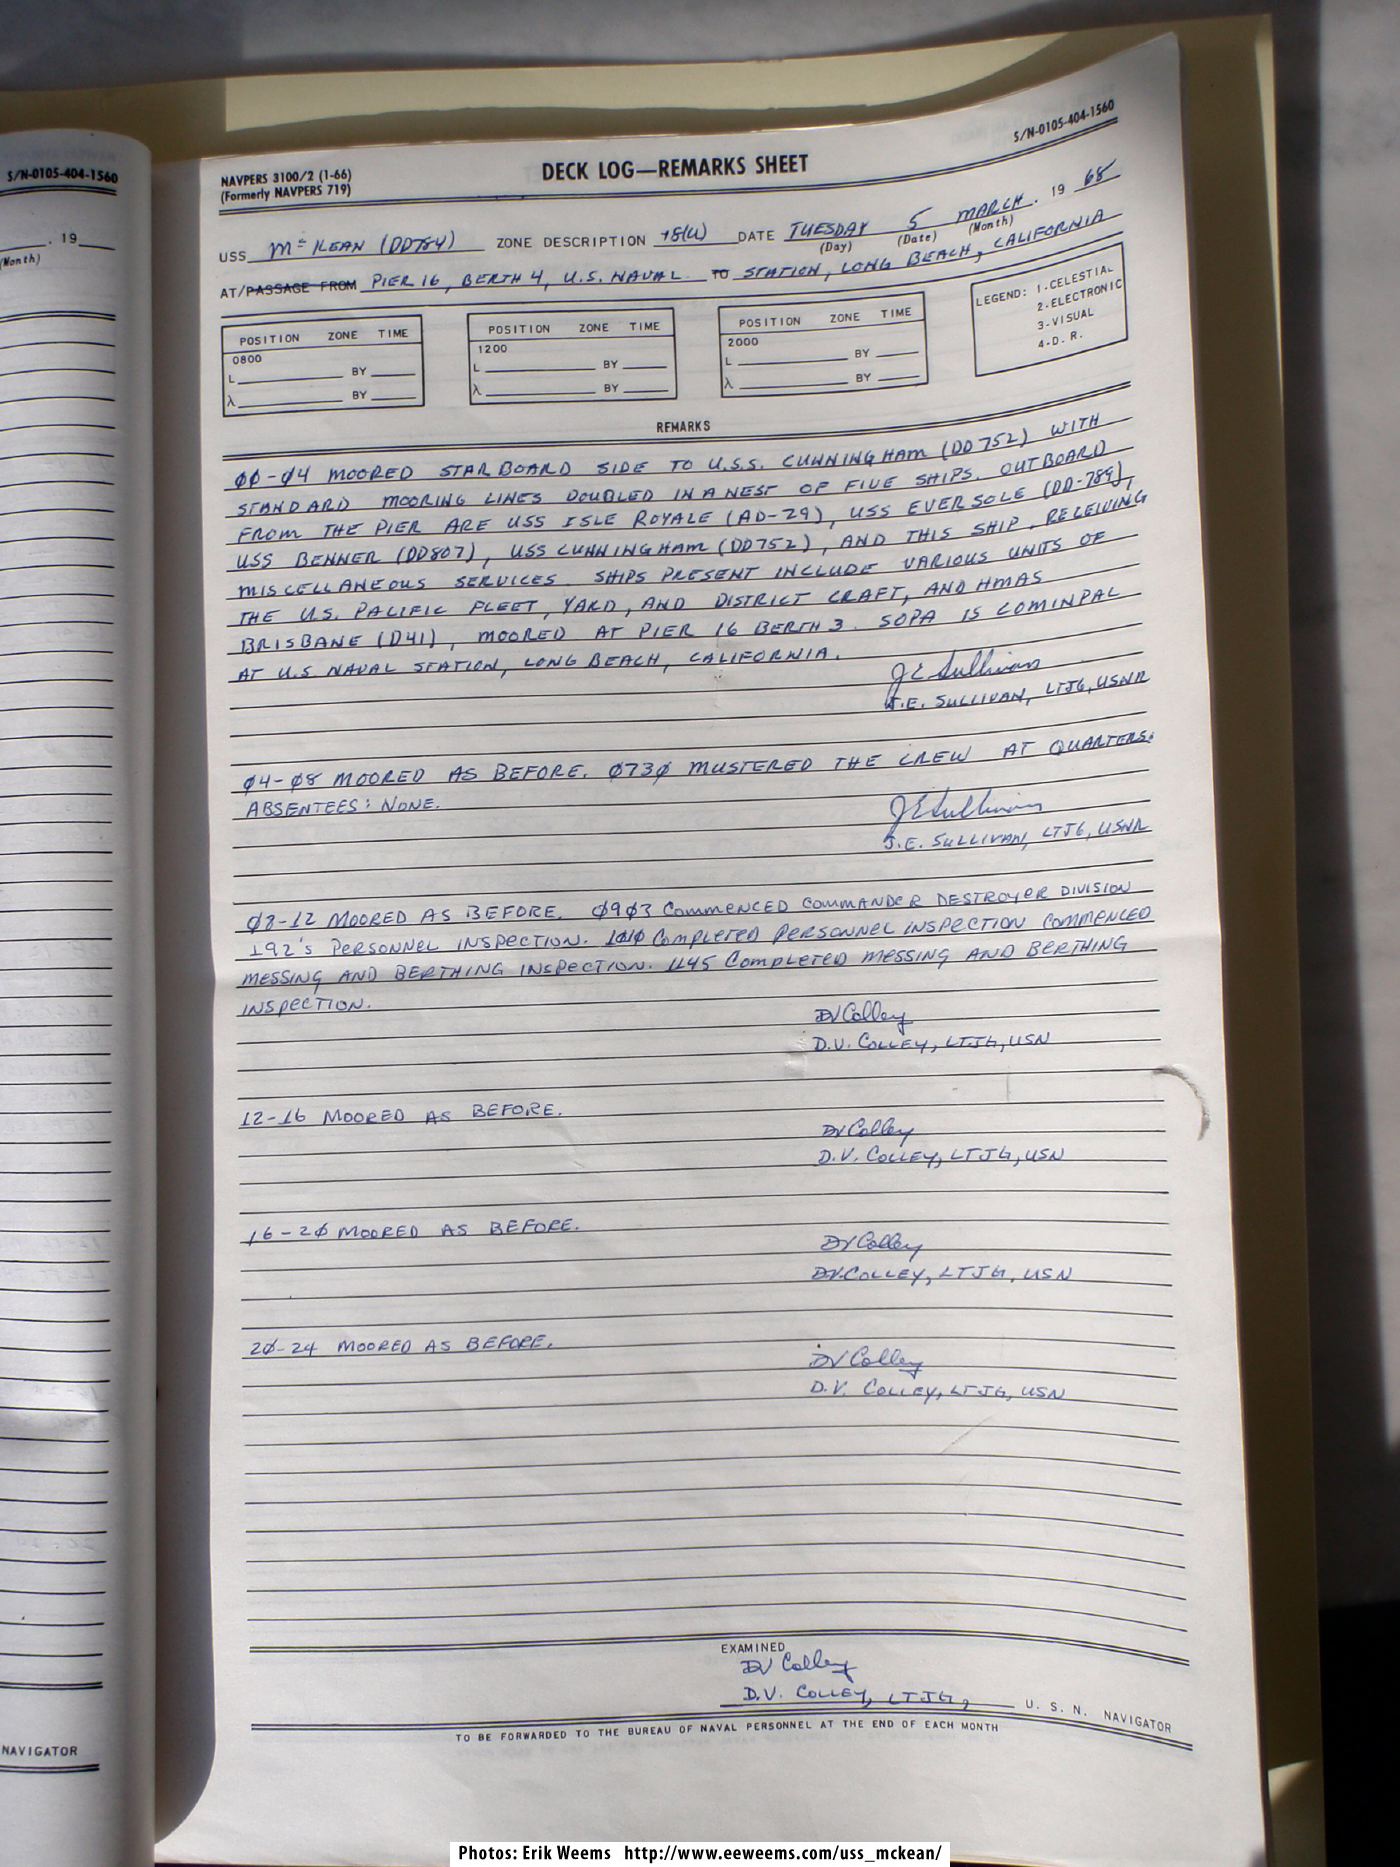 S/N-0105-404-1560
. 19
(Month)
NAVIGATOR
NAVPERS 3100/2 (1-66)
(Formerly NAVPERS 719)
DECK LOG—REMARKS SHEET
S/N-0105-404-1560
USS McKEAN (DD784) ZONE DESCRIPTION +8(U) DATE TUESDAY 5 MARCH . 19 68
(Day) (Date) (Month)
AT/PASSAGE FROM PIER 16, BERTH 4, U.S. NAVAL TO STATION, LONG BEACH, CALIFORNIA
POSITION ZONE TIME
0800
L BY
λ BY
POSITION ZONE TIME
1200
L BY
λ BY
POSITION ZONE TIME
2000
L BY
λ BY
LEGEND: 1-CELESTIAL
2-ELECTRONIC
3-VISUAL
4-D. R.
REMARKS
00-04 MOORED STARBOARD SIDE TO U.S.S. CUNNINGHAM (DD752) WITH
STANDARD MOORING LINES DOUBLED IN A NEST OF FIVE SHIPS. OUTBOARD
FROM THE PIER ARE USS ISLE ROYALE (AD-29), USS EVERSOLE (DD-789),
USS BENNER (DD807), USS CUNNINGHAM (DD752), AND THIS SHIP. RECEIVING
MISCELLANEOUS SERVICES. SHIPS PRESENT INCLUDE VARIOUS UNITS OF
THE U.S. PACIFIC FLEET, YARD, AND DISTRICT CRAFT, AND HMAS
BRISBANE (D41), MOORED AT PIER 16 BERTH 3. SOPA IS COMINPAC
AT U.S. NAVAL STATION, LONG BEACH, CALIFORNIA.
JE Sullivan
J.E. SULLIVAN, LTJG, USNR
04-08 MOORED AS BEFORE. 0730 MUSTERED THE CREW AT QUARTERS.
ABSENTEES: NONE.
JE Sullivan
J.E. SULLIVAN, LTJG, USNR
08-12 MOORED AS BEFORE. 0903 COMMENCED COMMANDER DESTROYER DIVISION
192's PERSONNEL INSPECTION. 1010 COMPLETED PERSONNEL INSPECTION COMMENCED
MESSING AND BERTHING INSPECTION. 1145 COMPLETED MESSING AND BERTHING
INSPECTION.
DV Colley
D.V. COLLEY, LTJG, USN
12-16 MOORED AS BEFORE.
DV Colley
D.V. COLLEY, LTJG, USN
16-20 MOORED AS BEFORE.
DV Colley
D.V. COLLEY, LTJG, USN
20-24 MOORED AS BEFORE.
DV Colley
D.V. COLLEY, LTJG, USN
EXAMINED
DV Colley
D.V. COLLEY, LTJG, U. S. N. NAVIGATOR
TO BE FORWARDED TO THE BUREAU OF NAVAL PERSONNEL AT THE END OF EACH MONTH
Photos: Erik Weems http://www.eeweems.com/uss_mckean/